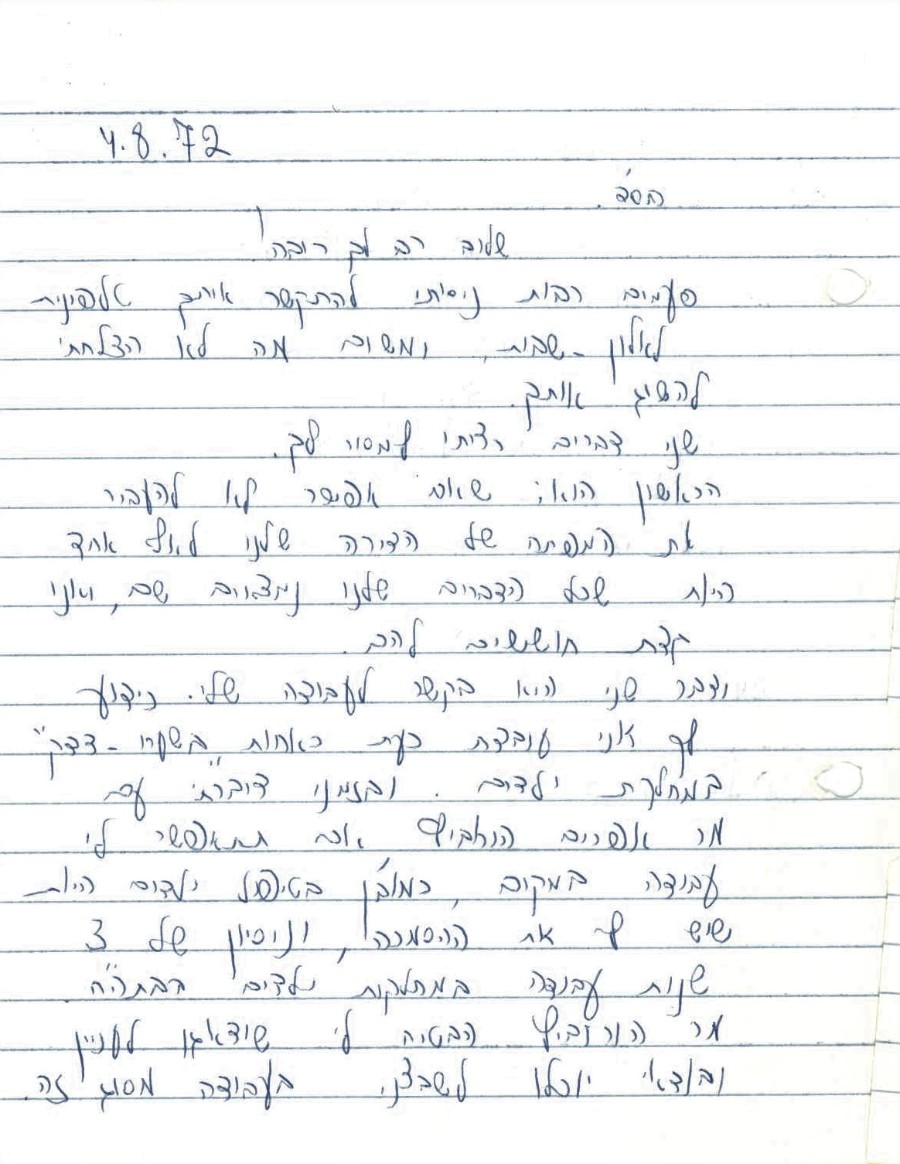 4.8.72
בס"ד.
שלום רב לך רובה!
פעמים רבות ניסיתי להתקשר איתך טלפונית
לאלון-שבות, ומשום מה לא הצלחתי
להשיג אותך.
שני דברים רציתי למסור לך.
הראשון הוא: שאם אפשר לא להעביר
את המפתח של הדירה שלנו לאף אחד
היות שכל הדברים שלנו נמצאים שם, ואנו
קצת חוששים להם.
ודבר שני הוא בקשר לעבודה שלי. כידוע
לך אני עובדת כעת כאחות ב"שערי-צדק"
במחלקת ילדים. ובזמני דיברתי עם
מר אפרים הורוביץ אם תתאפשר לי
עבודה במקום, כמובן בטיפול ילדים היות
שיש לי את ההסמכה, וניסיון של 3
שנות עבודה במחלקות ילדים
מר הורוביץ הבטיח לי שידאגו לעניין
ובודאי יוכלו לשבצני בעבודה מסוג זה.